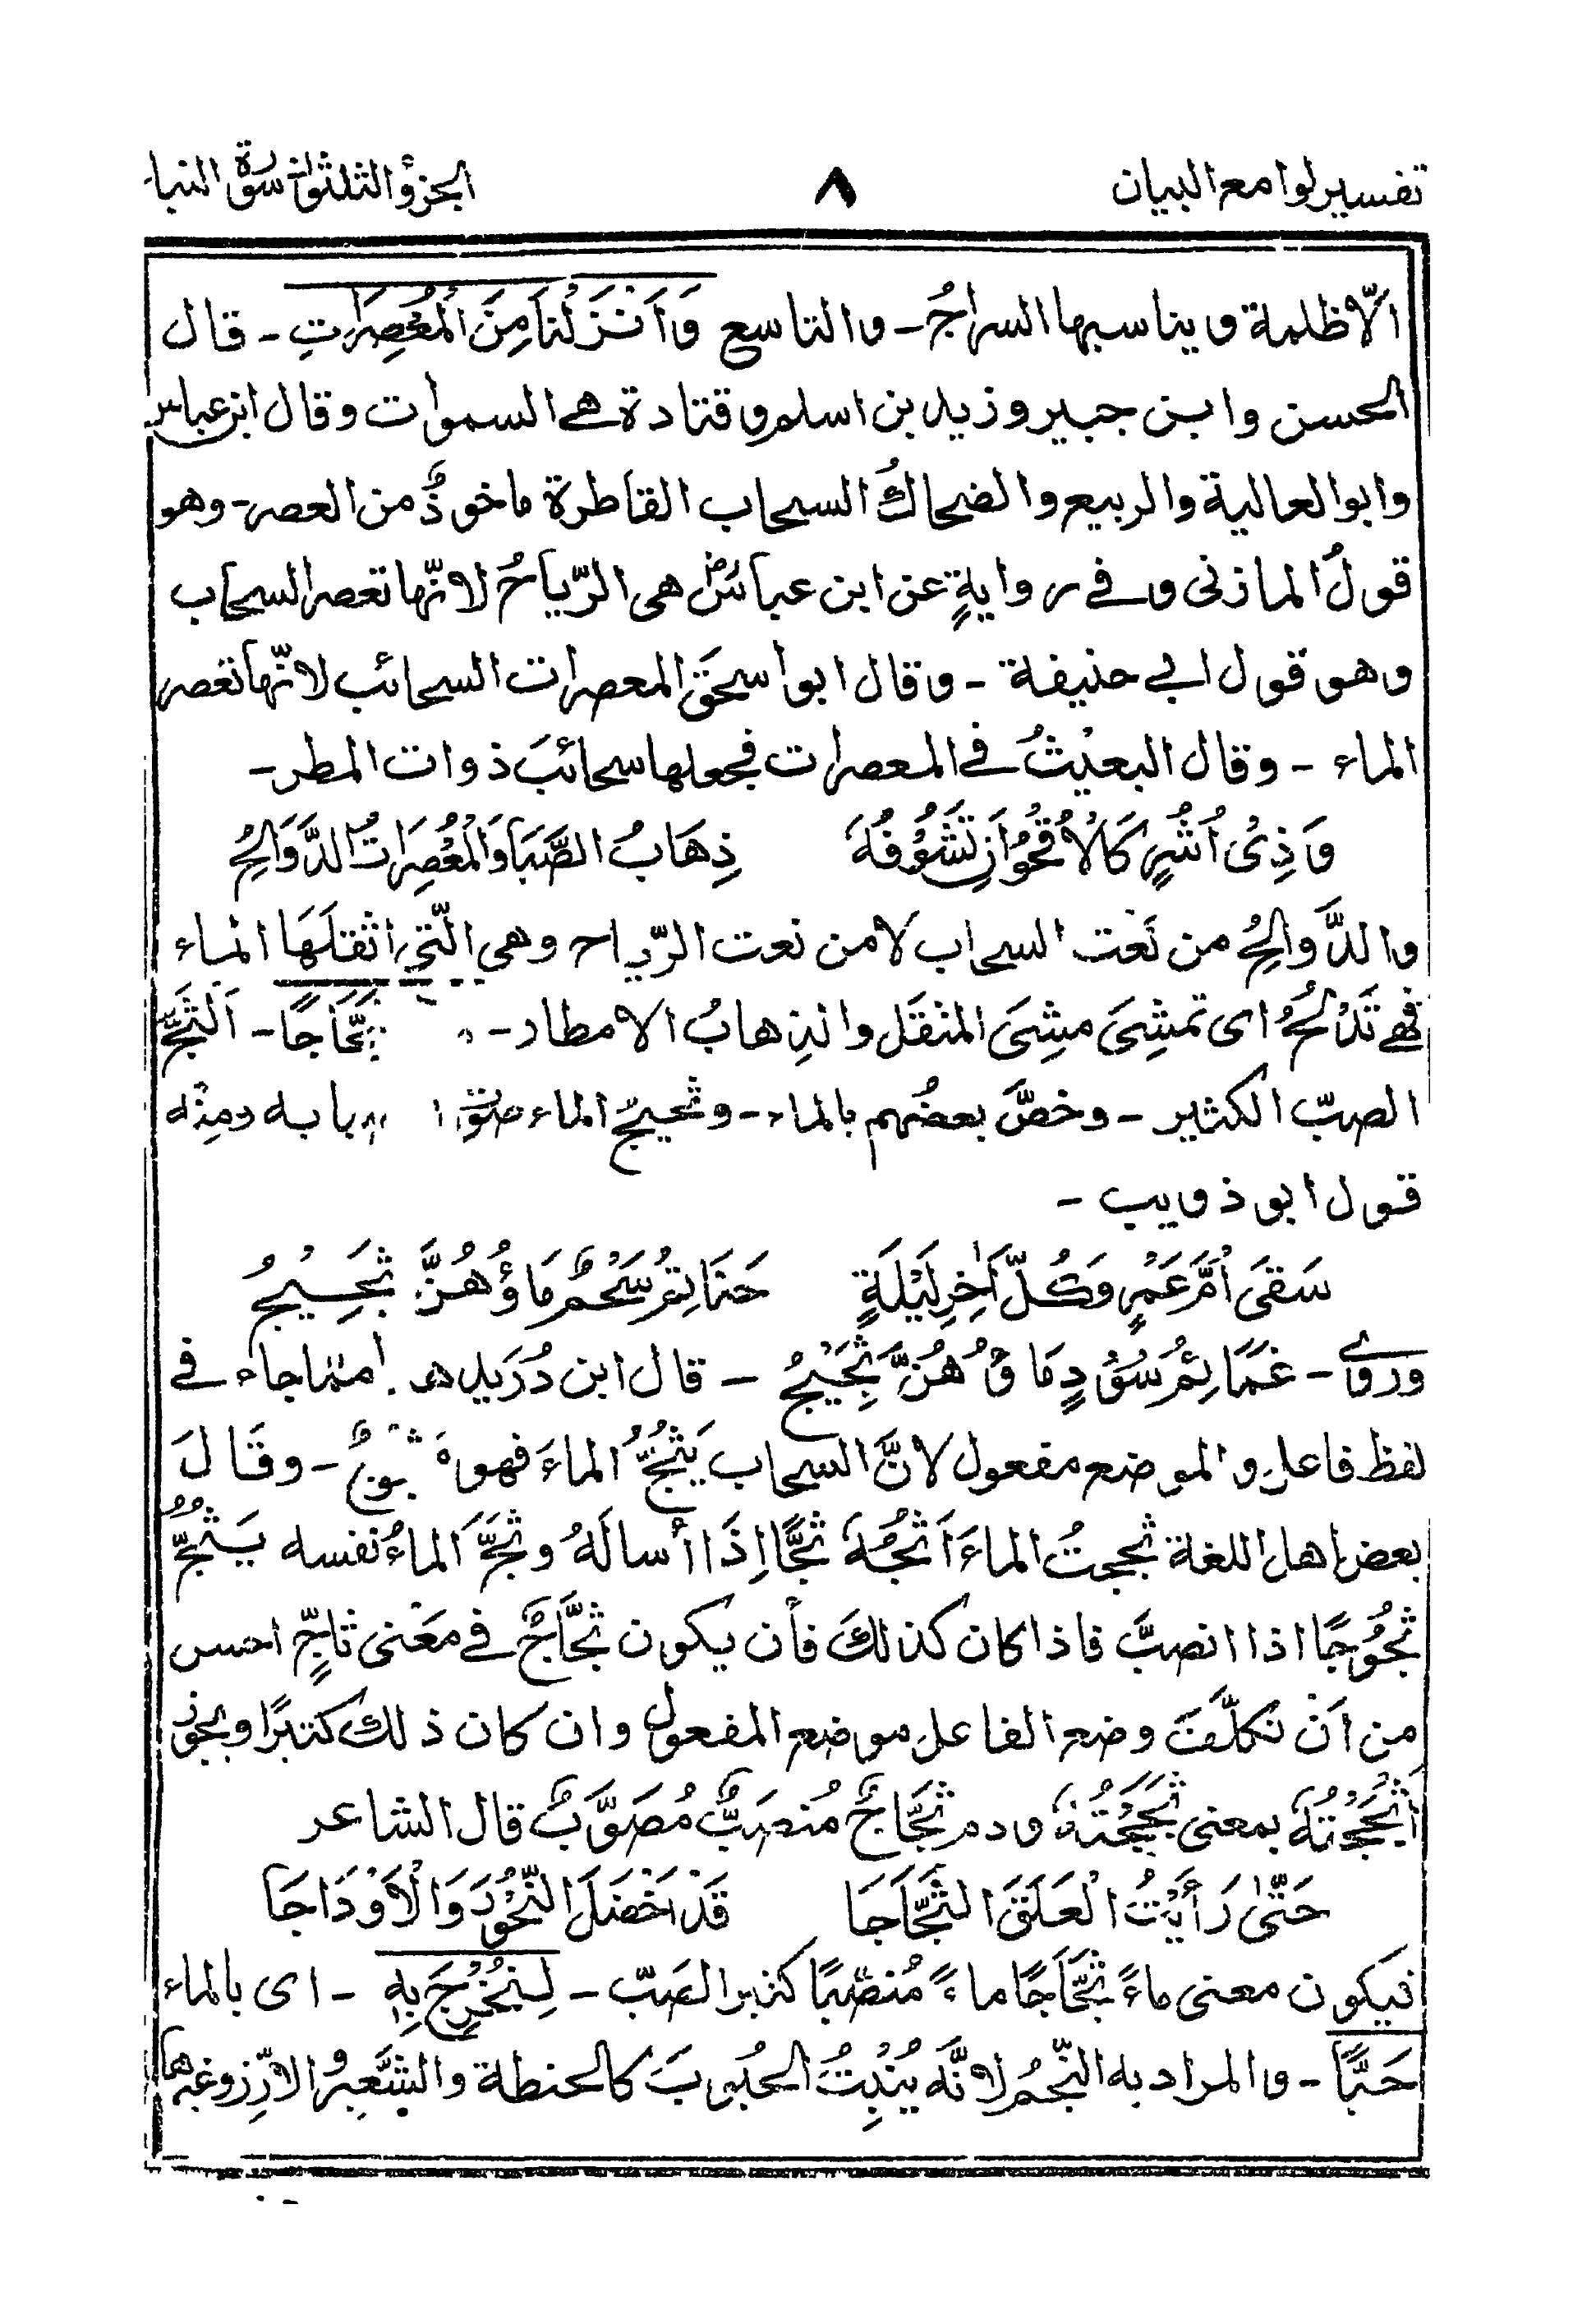 تفسير لوامع البيان ٨ الجزؤ الثلثون سورة النبا
الّا ظلمة ويناسبها السراجُ - والتاسع وَاَنْزَلْنَا مِنَ الْمُعْصِرَاتِ - قال
الحسن وابن جبير وزيد بن اسلم وقتادة هے السموات وقال ابن عباس
وابو العالية والربيع والضحاكُ السحاب القاطرة ماخوذٌ من العصر - وهو
قولُ المازنى وفے روايةٍ عن ابن عباسؓ هى الرّياحُ لانّها تعصر السحاب
وهو قول ابے حنيفة - وقال ابو اسحٰق المعصرات السحائب لانّها تعصر
الماء - وقال البعيْثُ فے المعصرات فجعلها سحائبَ ذوات المطر -
وَذِىْ اُشُرٍ كَالْاُقْحُوَانِ تَشُوْفُهٗ ذِهَابُ الصَّبَا وَالْمُعْصِرَاتُ الدَّوَالِحُ
والدَّوالِحُ من نَعت السحاب لا من نعت الرّياح وهى الّتى اثقلَهَا الماء
فهے تَدْلَحُ اى تمشِىَ مشِىَ المثقَل والذهابُ الامطار - ثَجَّاجًا - اَلثَّجُّ
الصبّ الكثير - وخصَّ بعضُهم بالماء - وثجيجُ الماء صوت انصبابه ومِنْه
قول ابو ذويب -
سَقىَ اُمَّ عَمْرٍ وَكُلّ اٰخِرِ لَيْلَةٍ حَنَاتِمُ سُحْمٌ مَاؤُهُنَّ ثَجِيْجُ
ورُوِےَ - غَمَائِمُ سُوْدٍ مَاؤُهُنَّ ثَجِيْجُ - قال ابن دُرَيد هذا مما جاء فے
لفظ فاعل والموضع مفعول لانَّ السحاب يَثُجُّ الماءَ فهو مثجوجٌ - وقَالَ
بعض اهل اللغة ثججتُ الماءَ اَثجُّهٗ ثَجًّا اِذَا أسالَهُ وثجَّ الماءُ نفسه يَثُجُّ
ثُجُوْجًا اذا انصبَّ فاذا كان كذلكَ فأن يكون ثجَّاجٌ فے معْنى ثاجٍّ احسن
من اَنْ نتكلَّفَ وضع الفاعل موضع المفعول وان كان ذلك كثيرًا ويجوز
اَثْجَجْتُهٗ بمعنى ثَجَجْتُهٗ ودم ثَجَّاجٌ مُنصَبٌّ مُصَوَّبٌ قال الشاعر
حَتّٰى رَأيْتُ الْعَلَقَ الثَّجَّاجَا قَدْ اَخْضَلَ النُّحُوْرَ وَالْاَوْدَاجَا
فيكون معنى ماءً ثجَّاجًا ماءً مُنصَبًّا كثير الصَبّ - لِنُخْرِجَ بِهٖ - اى بالماء
حَبًّا - والمراد به النّجمُ لانَّه يُنْبِتُ الحبُوبَ كالحنطة والشَّعِيْرُ الارّزوغيرها